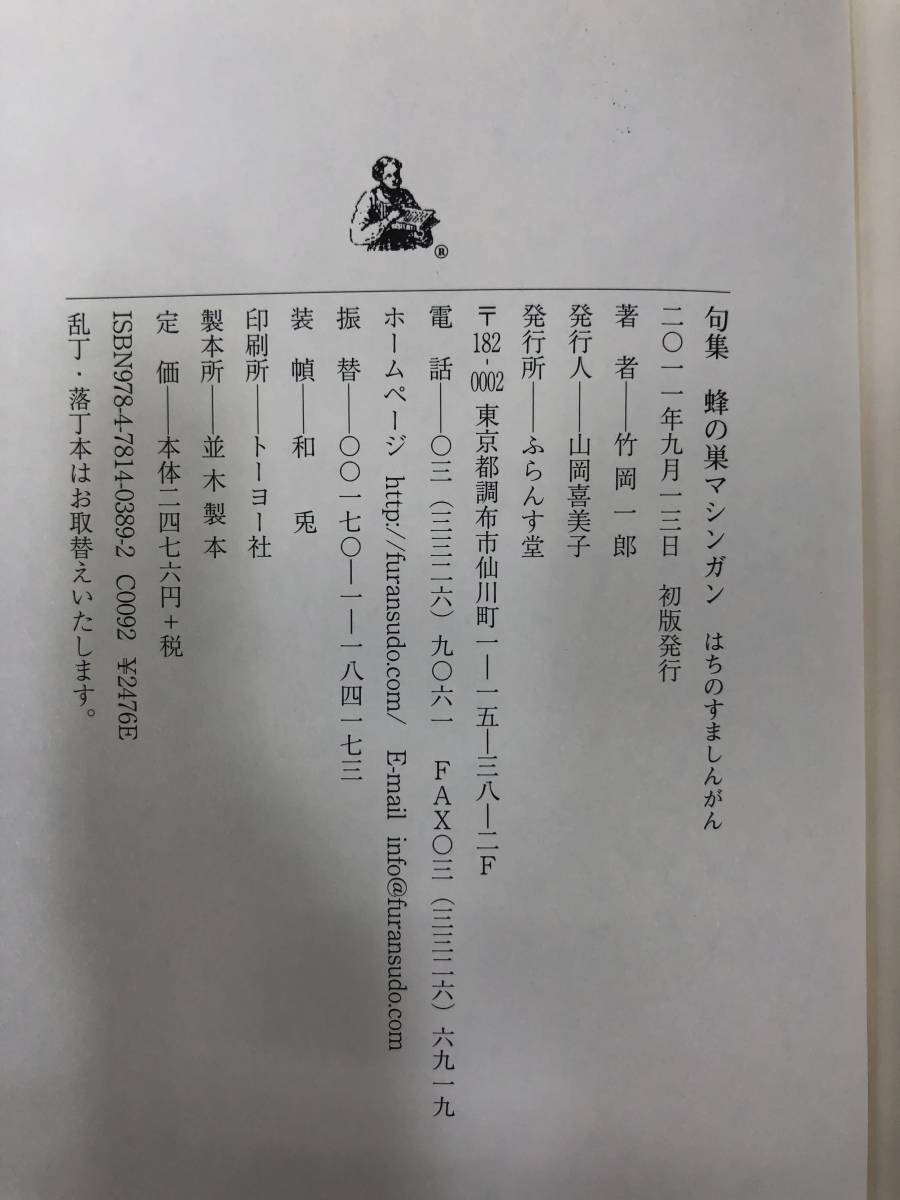 句集　蜂の巣マシンガン　はちのすましんがん
二〇一一年九月一三日　初版発行
著　者――竹岡一郎
発行人――山岡喜美子
発行所――ふらんす堂
〒182-0002 東京都調布市仙川町一―一五―三八―二F
電　話――〇三（三三二六）九〇六一　FAX〇三（三三二六）六九一九
ホームページ　http://furansudo.com/　E-mail　info@furansudo.com
振　替――〇〇一七〇―一―一八四一七三
装　幀――和　兎
印刷所――トーヨー社
製本所――並木製本
定　価――本体二四七六円＋税
ISBN978-4-7814-0389-2　C0092　¥2476E
乱丁・落丁本はお取替えいたします。
®